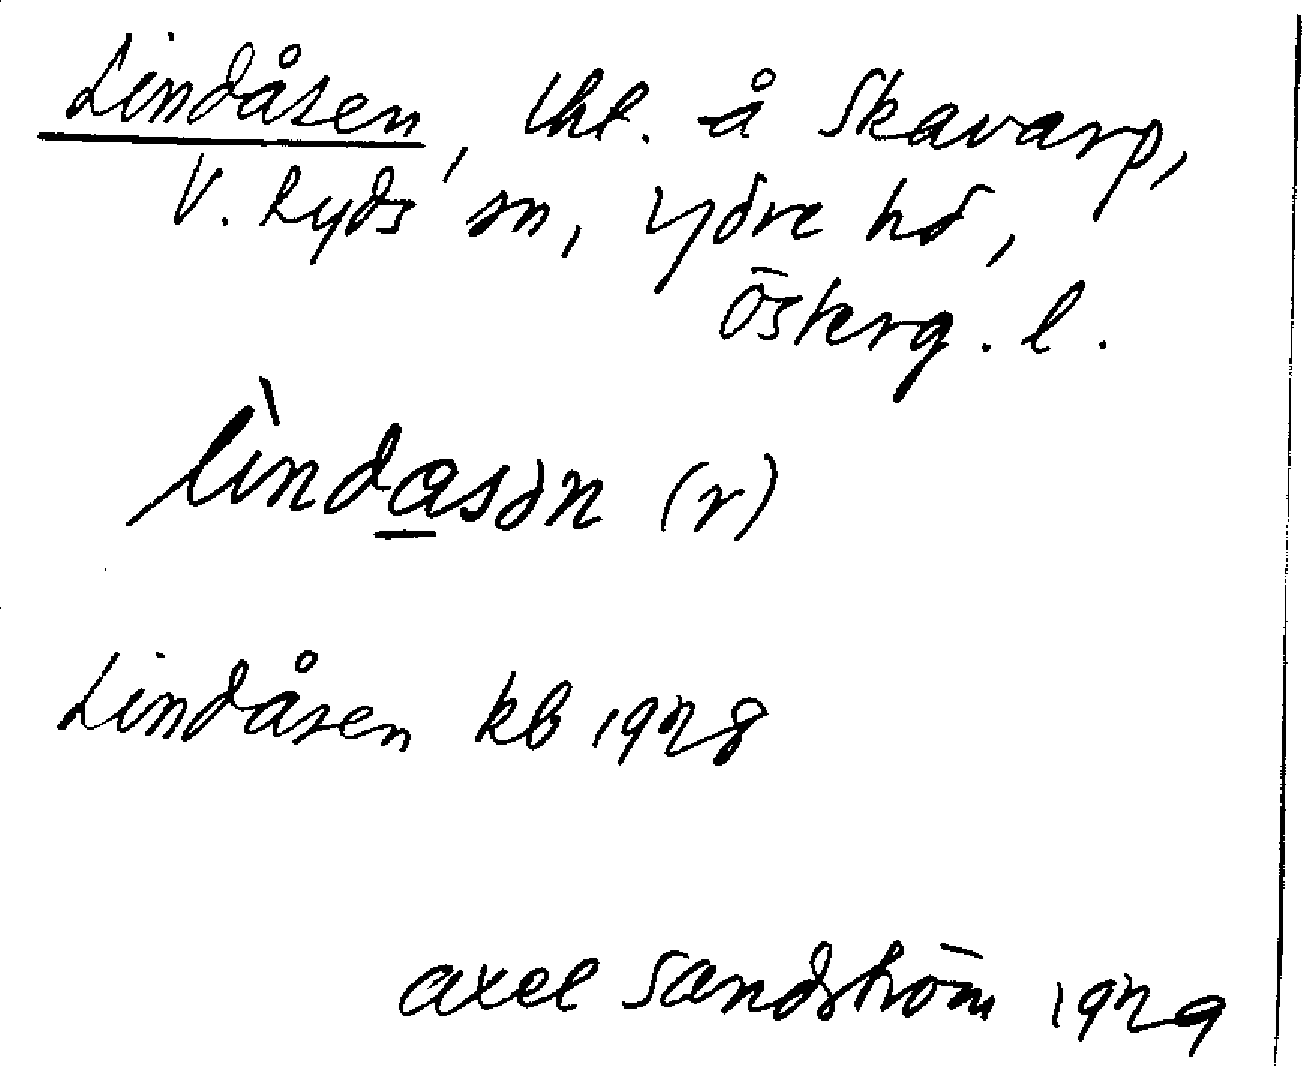 Lindåsen, lht. å Skavarp,
V. Ryds sn, Ydre hd,
Österg. l.
lìndasən (r)
Lindåsen kb 1928
Axel Sandström 1929